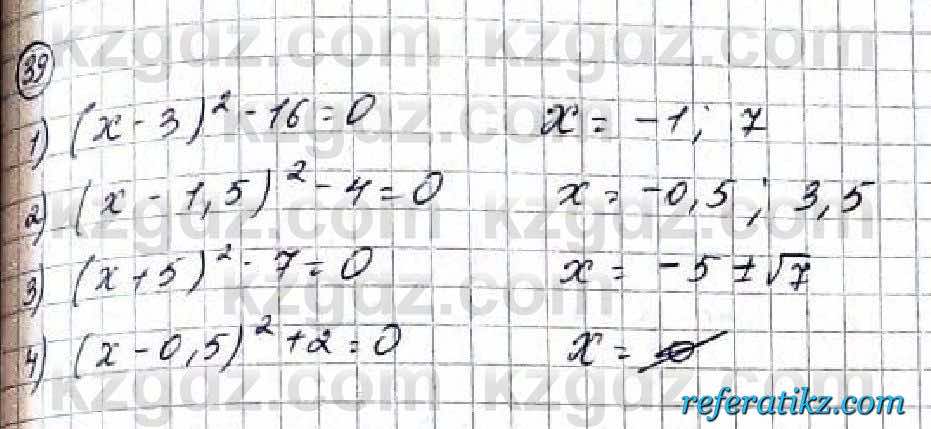 kzgdz.com kzgdz.com
39
1) (x - 3)² - 16 = 0 x = -1; 7
kzgdz.com kzgdz.com
2) (x - 1,5)² - 4 = 0 x = -0,5; 3,5
3) (x + 5)² - 7 = 0 x = -5 ± √7
kzgdz.com kzgdz.com
4) (x - 0,5)² + 2 = 0 x = ∅
kzgdz.com
referatikz.com